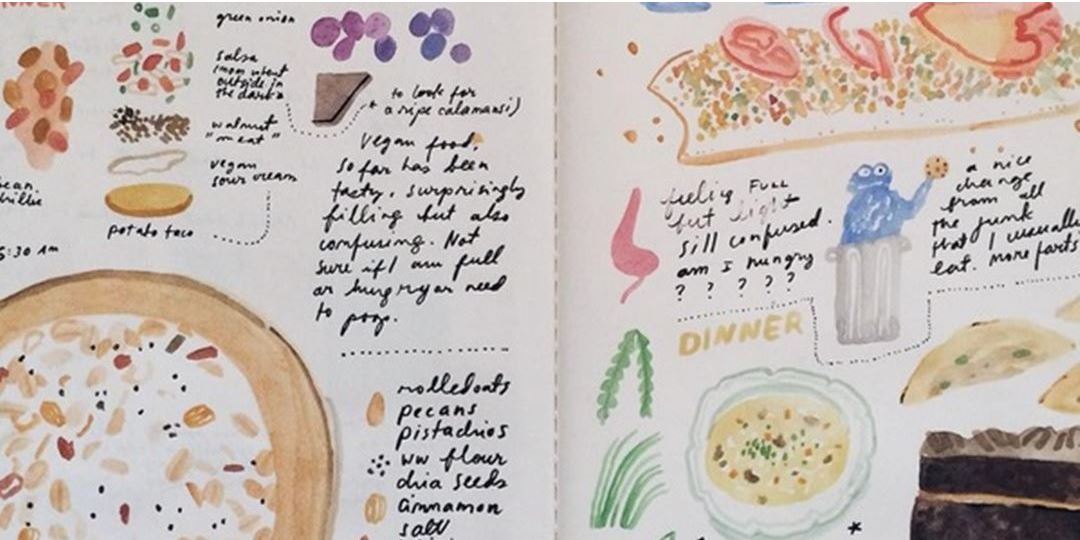 green onion
salsa
(mom went
outside in
the dark
walnut
"meat"
vegan
sour cream
potato taco
5:30 AM
to look for
a ripe calamansi)
Vegan food,
so far has been
tasty, surprisingly
filling but also
confusing. Not
sure if I am full
or hungry or need
to poop.
rolled oats
pecans
pistachios
ww flour
chia seeds
cinnamon
salt
feeling FULL
but light
sill confused.
am I hungry
? ? ? ? ?
a nice
change
from all
the junk
that I usually
eat. more farts
DINNER